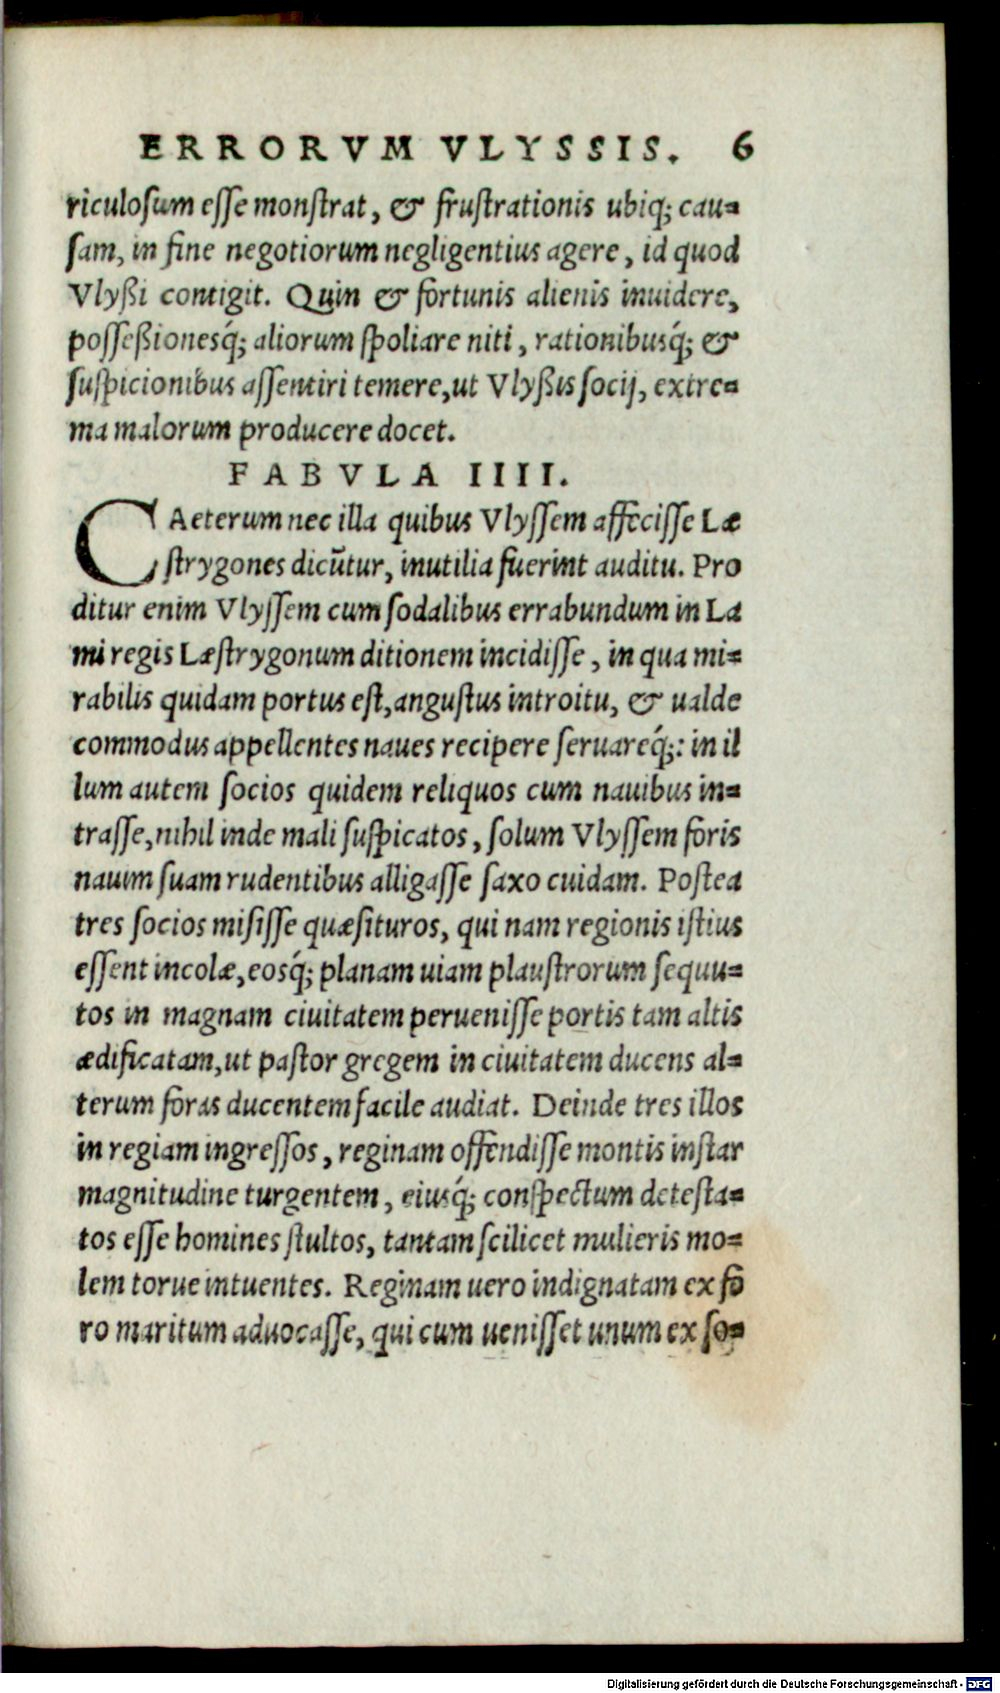 ERRORVM VLYSSIS. 6
riculoſum eſſe monſtrat, & fruſtrationis ubiq; cau-
ſam, in fine negotiorum negligentius agere, id quod
Vlyßi contigit. Quin & fortunis alienis inuidere,
poſſeßionesq́; aliorum ſpoliare niti, rationibusq́; &
ſuſpicionibus aſſentiri temere, ut Vlyßis ſocij, extre-
ma malorum producere docet.
FABVLA IIII.
CAeterum nec illa quibus Vlyſſem affeciſſe Læ
ſtrygones dicūtur, inutilia fuerint auditu. Pro
ditur enim Vlyſſem cum ſodalibus errabundum in La
mi regis Læſtrygonum ditionem incidiſſe, in qua mi-
rabilis quidam portus eſt, anguſtus introitu, & ualde
commodus appellentes naues recipere ſeruareq́;: in il
lum autem ſocios quidem reliquos cum nauibus in-
traſſe, nihil inde mali ſuſpicatos, ſolum Vlyſſem foris
nauim ſuam rudentibus alligaſſe ſaxo cuidam. Poſtea
tres ſocios miſiſſe quæſituros, qui nam regionis iſtius
eſſent incolæ, eosq́; planam uiam plauſtrorum ſequu-
tos in magnam ciuitatem perueniſſe portis tam altis
ædificatam, ut paſtor gregem in ciuitatem ducens al-
terum foras ducentem facile audiat. Deinde tres illos
in regiam ingreſſos, reginam offendiſſe montis inſtar
magnitudine turgentem, eiusq́; conſpectum deteſta-
tos eſſe homines ſtultos, tantam ſcilicet mulieris mo-
lem torue intuentes. Reginam uero indignatam ex fo
ro maritum aduocaſſe, qui cum ueniſſet unum ex ſo-
Digitalisierung gefördert durch die Deutsche Forschungsgemeinschaft - DFG